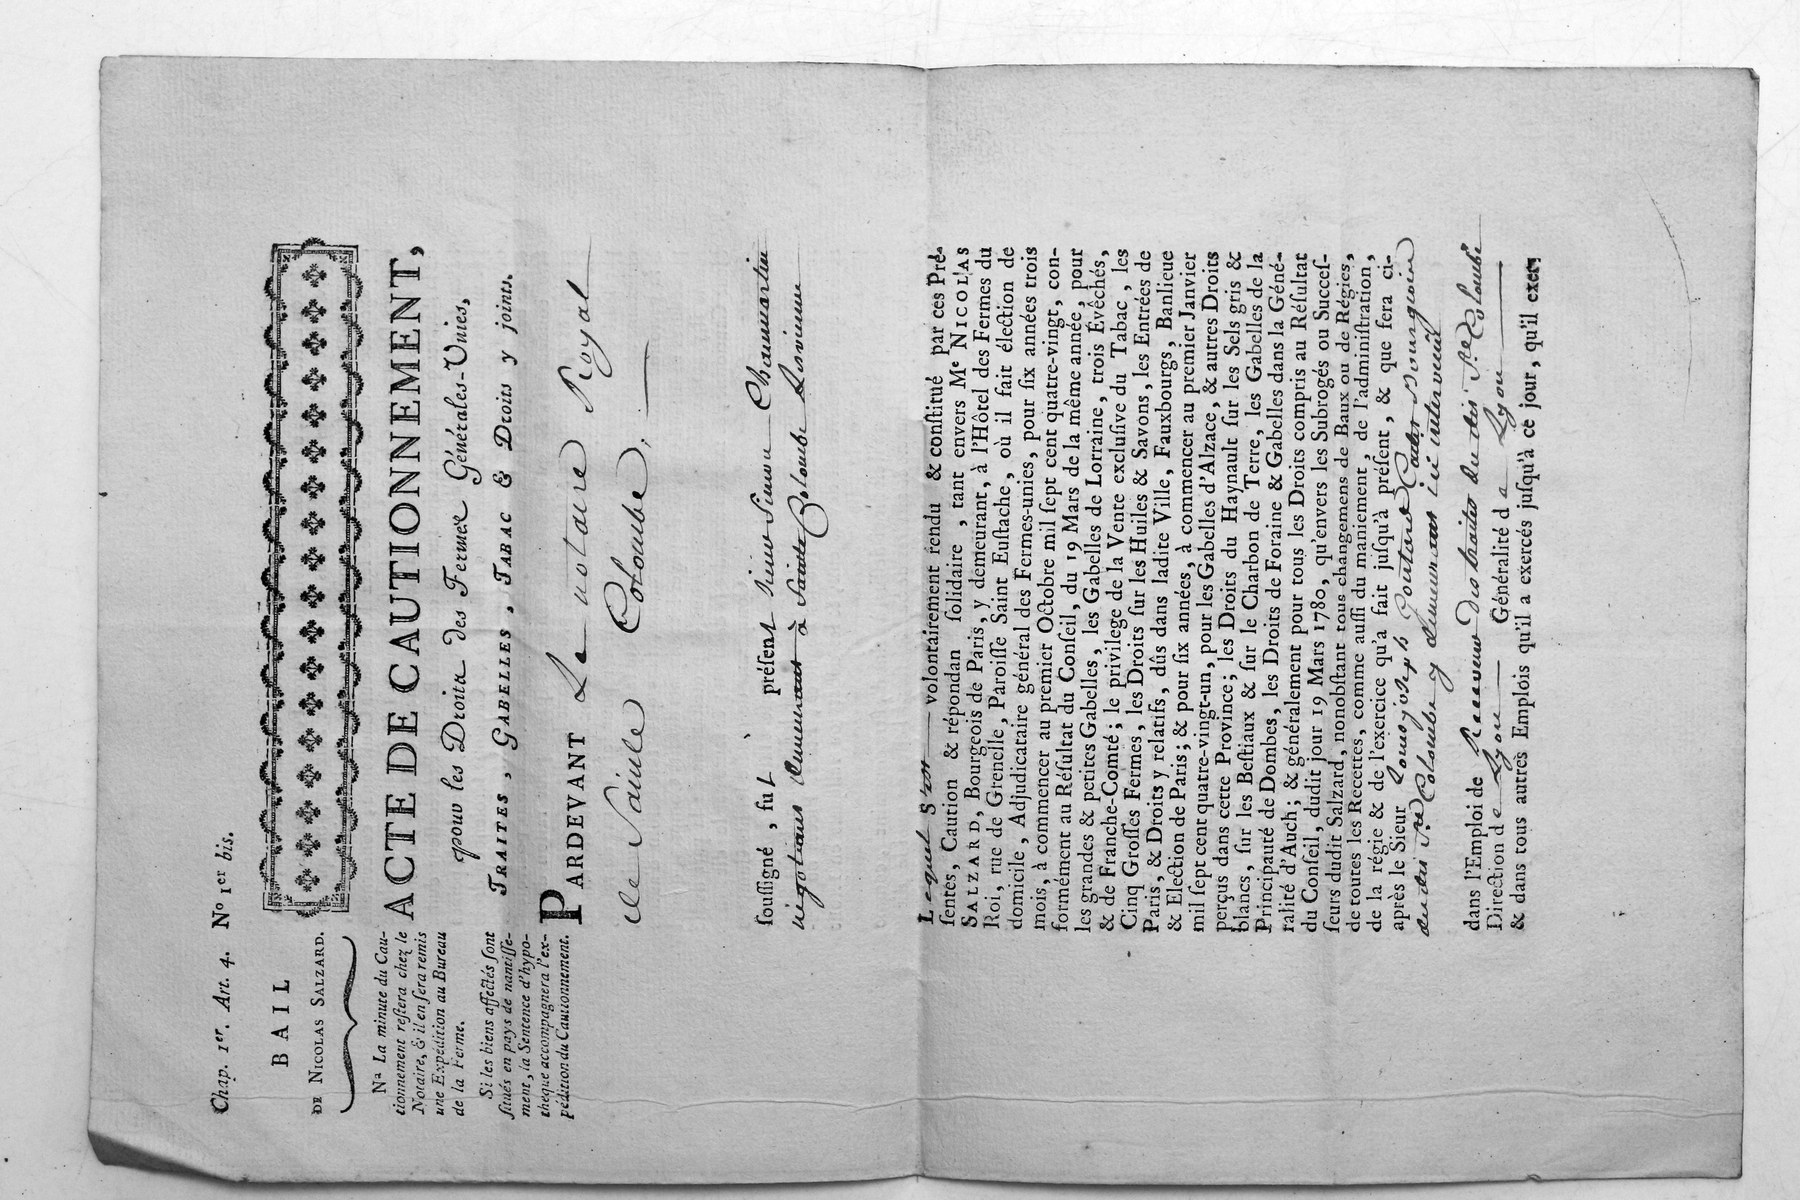 Chap. 1er. Art. 4. N° 1er bis.
BAIL
DE NICOLAS SALZARD.
Na La minute du Cau-
tionnement reſtera chez le
Notaire, & il en ſera remis
une Expédition au Bureau
de la Ferme.
Si les biens affectés ſont
ſitués en pays de nantiſſe-
ment, la Sentence d'hypo-
theque accompagnera l'ex-
pédition du Cautionnement.
ACTE DE CAUTIONNEMENT,
pour les Droits des Fermes Générales-Unies,
TRAITES, GABELLES, TABAC & Droits y joints.
PARDEVANT Le notaire Royal
de Sainte Colombe,
ſouſſigné, fut préſent Chaumartin
négotiant demeurant à Sainte Colombe
Lequel Sr volontairement rendu & conſtitué par ces Pré-
ſentes, Caution & répondan ſolidaire, tant envers Me NICOLAS
SALZARD, Bourgeois de Paris, y demeurant, à l'Hôtel des Fermes du
Roi, rue de Grenelle, Paroiſſe Saint Euſtache, où il fait élection de
domicile, Adjudicataire général des Fermes-unies, pour ſix années trois
mois, à commencer au premier Octobre mil ſept cent quatre-vingt, con-
formément au Réſultat du Conſeil, du 19 Mars de la même année, pour
les grandes & petites Gabelles, les Gabelles de Lorraine, trois Évêchés,
& de Franche-Comté; le privilege de la Vente excluſive du Tabac, les
Cinq Groſſes Fermes, les Droits ſur les Huiles & Savons, les Entrées de
Paris, & Droits y relatifs, dûs dans ladite Ville, Fauxbourgs, Banlieue
& Election de Paris; & pour ſix années, à commencer au premier Janvier
mil ſept cent quatre-vingt-un, pour les Gabelles d'Alzace, & autres Droits
perçus dans cette Province; les Droits du Haynault ſur les Sels gris &
blancs, ſur les Beſtiaux & ſur le Charbon de Terre, les Gabelles de la
Principauté de Dombes, les Droits de Foraine & Gabelles dans la Géné-
ralité d'Auch; & généralement pour tous les Droits compris au Réſultat
du Conſeil, dudit jour 19 Mars 1780, qu'envers les Subrogés ou Succeſ-
ſeurs dudit Salzard, nonobſtant tous changemens de Baux ou de Régies,
de toutes les Recettes, comme auſſi du maniement, de l'adminiſtration,
de la régie & de l'exercice qu'a fait juſqu'à préſent, & que fera ci-
après le Sieur Louis joseph
audit Ste Colombe y demeurant
dans l'Emploi de Receveur des traites dudit Ste Colombe
Direction de Lyon Généralité de Lyon
& dans tous autres Emplois qu'il a exercés juſqu'à ce jour, qu'il exer-